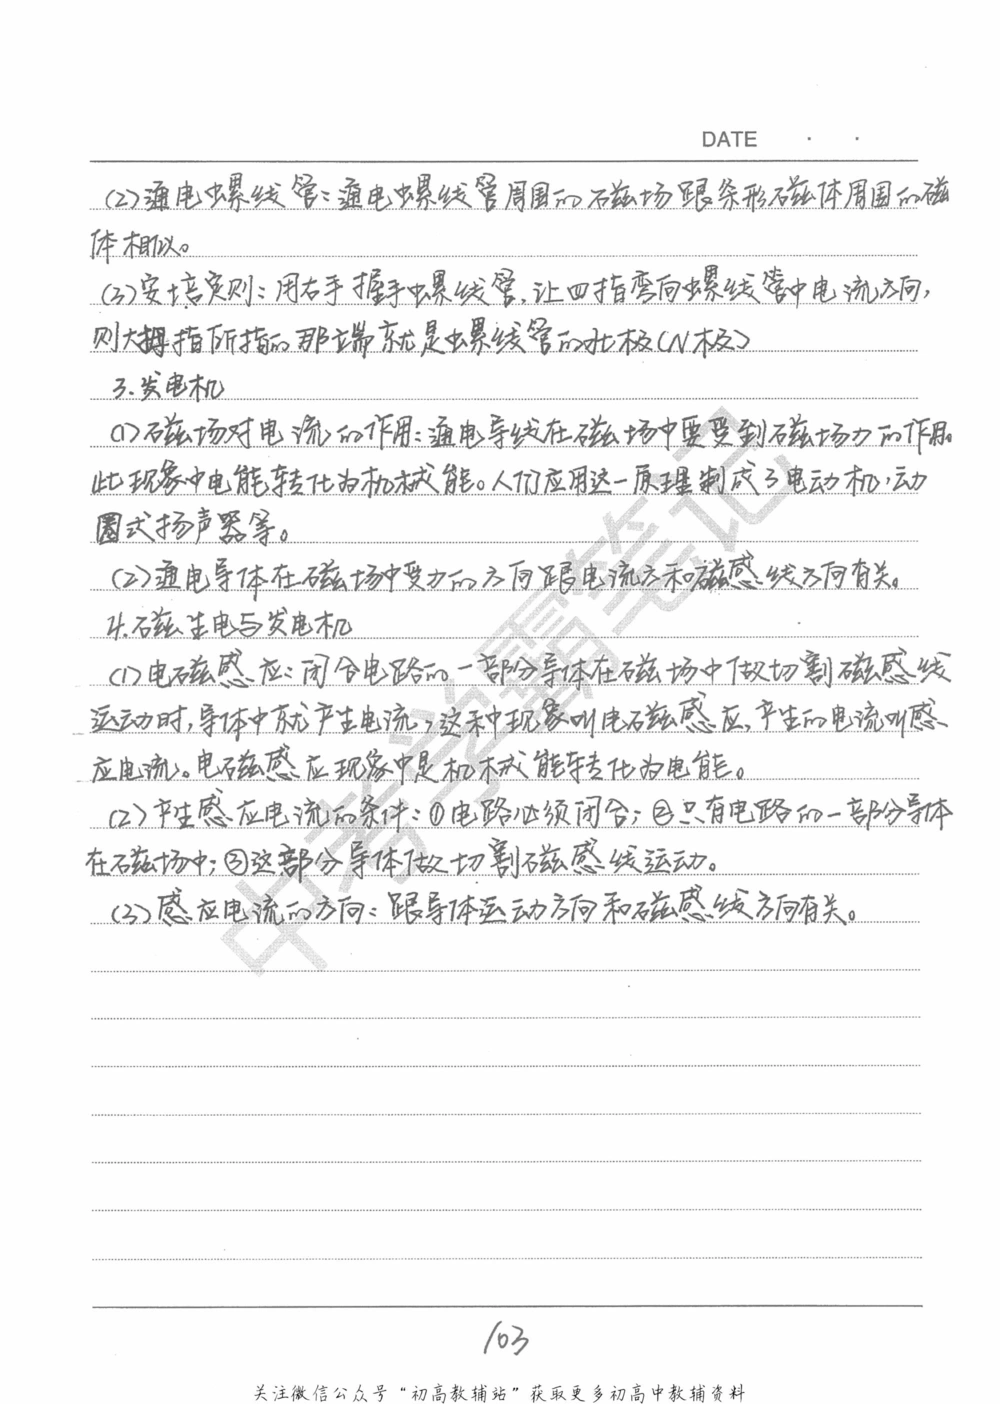 DATE · ·
(2)通电螺线管:通电螺线管周围的磁场跟条形磁体周围的磁
体相似。
(3)安培定则:用右手握手螺线管,让四指弯向螺线管中电流方向,
则大拇指所指的那端就是螺线管的北极(N极)
3.发电机
(1)磁场对电流的作用:通电导线在磁场中要受到磁场力的作用。
此现象中电能转化为机械能。人们应用这一原理制成了电动机,动
圈式扬声器等。
(2)通电导体在磁场中受力的方向跟电流方和磁感线方向有关。
4.磁生电与发电机
(1)电磁感应:闭合电路的一部分导体在磁场中做切割磁感线
运动时,导体中就产生电流,这种现象叫电磁感应,产生的电流叫感
应电流。电磁感应现象中是机械能转化为电能。
(2)产生感应电流的条件:①电路必须闭合;②只有电路的一部分导体
在磁场中;③这部分导体做切割磁感线运动。
(3)感应电流的方向:跟导体运动方向和磁感线方向有关。
中考学霸笔记
103
关注微信公众号“初高教辅站”获取更多初高中教辅资料